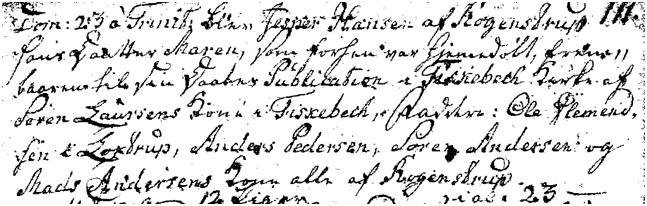 Dom: 23 à Trinit: blev Jesper Hansen af Kogenstrup 111.
hans Daatter Maren, som forhen var hjemedøbt, frem=
baaren til sin Daabes Publication i Fiskebech Kirke af
Søren Laursens Kone i Fiskebech, Faddere: Ole Clemend,
sen i Loxtrup, Anders Pedersen, Søren Andersen og
Mads Andersens Kone alle af Kogenstrup.
23